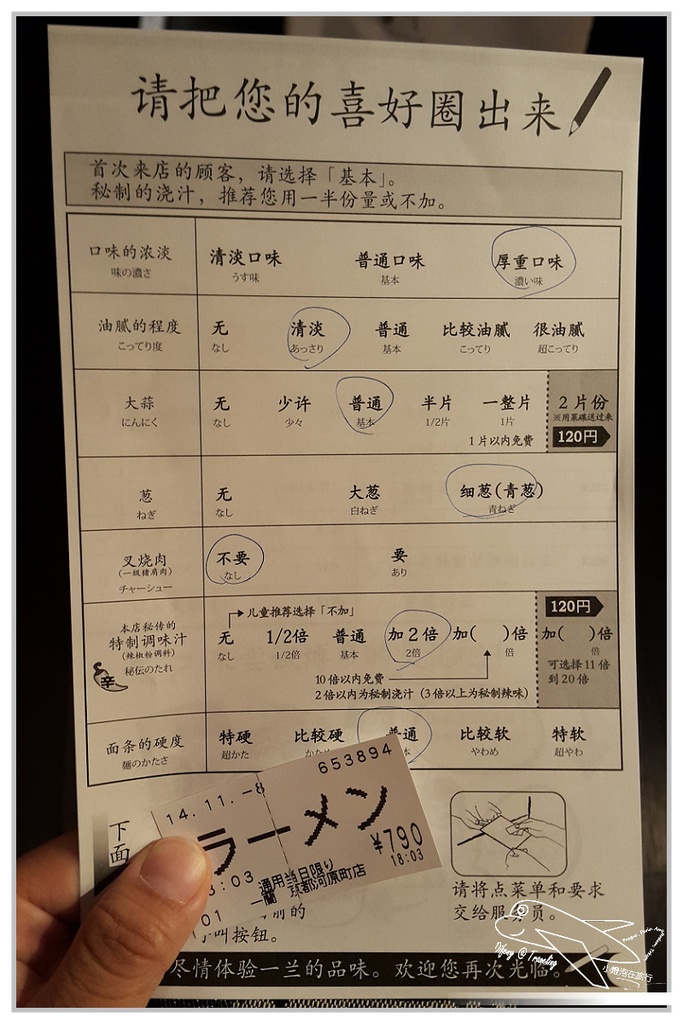 请把您的喜好圈出来
首次来店的顾客，请选择「基本」。
秘制的浇汁，推荐您用一半份量或不加。
口味的浓淡 清淡口味 普通口味 厚重口味
味の濃さ うす味 基本 濃い味
油腻的程度 无 清淡 普通 比较油腻 很油腻
こってり度 なし あっさり 基本 こってり 超こってり
大蒜 无 少许 普通 半片 一整片 2片份
にんにく なし 少々 基本 1/2片 1片 ※用菜碟送过来
1片以内免费 120円
葱 无 大葱 细葱(青葱)
ねぎ なし 白ねぎ 青ねぎ
叉烧肉 不要 要
(一级猪肩肉) なし あり
チャーシュー
120円
儿童推荐选择「不加」
本店秘传的
特制调味汁 无 1/2倍 普通 加2倍 加( )倍 加( )倍
(辣椒粉调料) なし 1/2倍 基本 2倍 倍 倍
秘伝のたれ
辛
10倍以内免费 可选择11倍
2倍以内为秘制浇汁 (3倍以上为秘制辣味) 到20倍
面条的硬度 特硬 比较硬 普通 比较软 特软
麺のかたさ 超かた やわめ 超やわ
653894
14.11.-8
ラーメン
¥790
18:03
:03 通用当日限り
01 一蘭 京都河原町店
下面
前的
叫按钮。
请将点菜单和要求
交给服务员。
尽情体验一兰的品味。欢迎您再次光临。
小燈泡在旅行